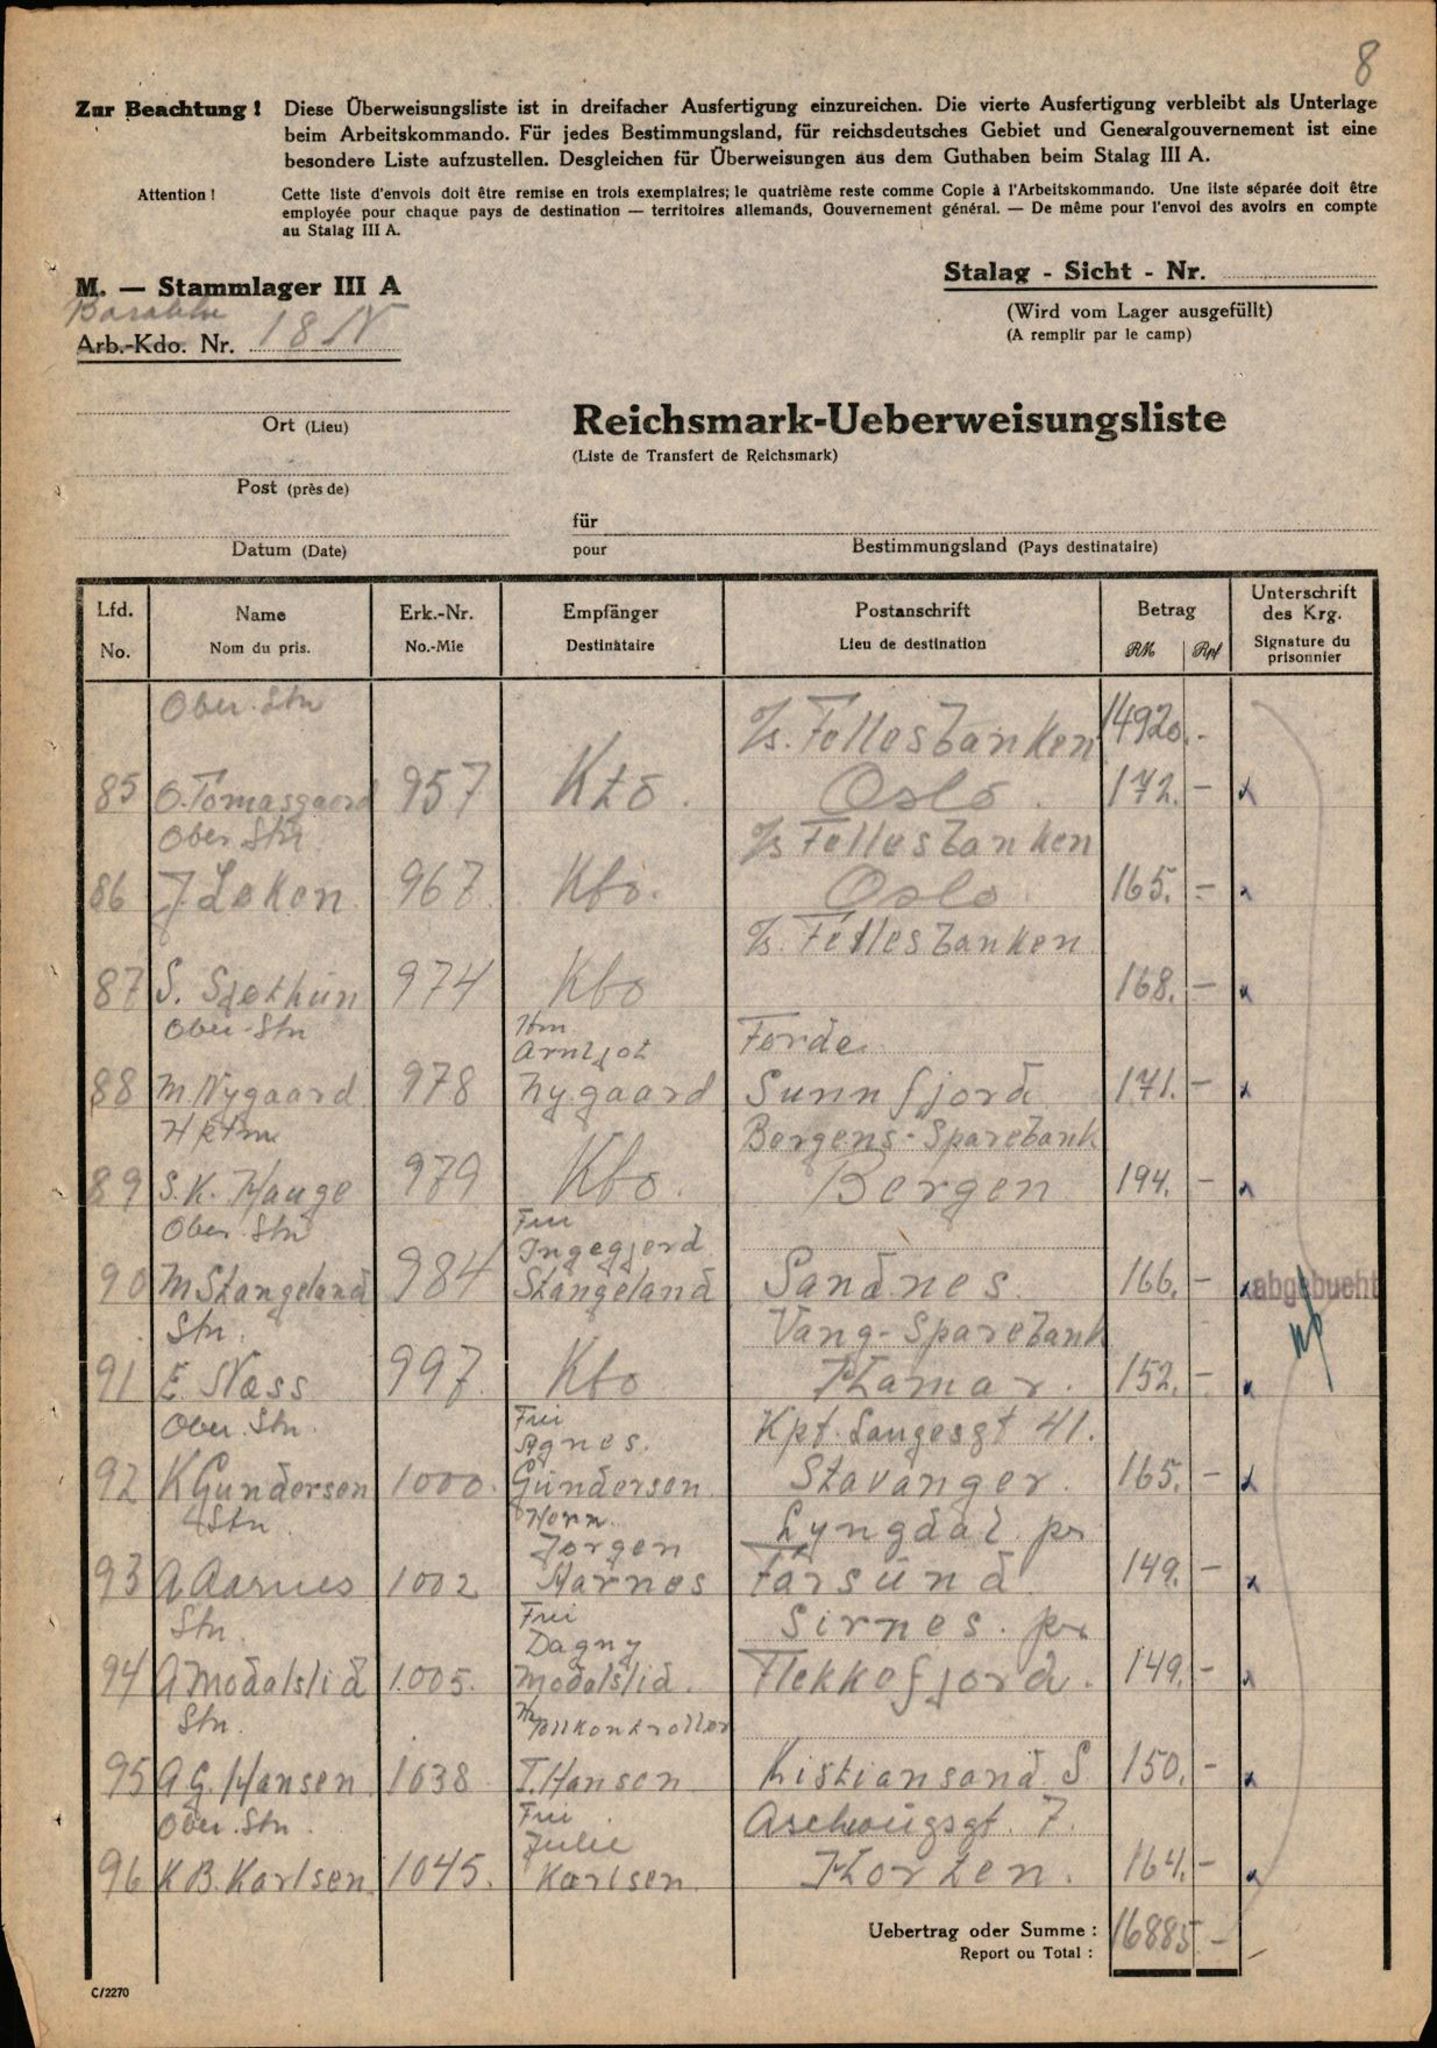 8
Zur Beachtung! Diese Überweisungsliste ist in dreifacher Ausfertigung einzureichen. Die vierte Ausfertigung verbleibt als Unterlage
beim Arbeitskommando. Für jedes Bestimmungsland, für reichsdeutsches Gebiet und Generalgouvernement ist eine
besondere Liste aufzustellen. Desgleichen für Überweisungen aus dem Guthaben beim Stalag III A.
Attention! Cette liste d'envois doit être remise en trois exemplaires; le quatrième reste comme Copie à l'Arbeitskommando. Une liste séparée doit être
employée pour chaque pays de destination — territoires allemands, Gouvernement général. — De même pour l'envoi des avoirs en compte
au Stalag III A.
M. — Stammlager III A
Stalag - Sicht - Nr.
(Wird vom Lager ausgefüllt)
(A remplir par le camp)
Arb.-Kdo. Nr. 18 N
Ort (Lieu)
Reichsmark-Ueberweisungsliste
(Liste de Transfert de Reichsmark)
Post (près de)
für
Datum (Date)
pour Bestimmungsland (Pays destinataire)
Lfd. Name Erk.-Nr. Empfänger Postanschrift Betrag Unterschrift des Krg.
No. Nom du pris. No.-Mle Destinataire Lieu de destination RM Rpf Signature du prisonnier
Ober. Stn %s. Fellesbanken 14920.-
85 O. Tomasgaard 957 Kto. Oslo. 172. - x
Ober Stn %s Fellesbanken
86 J Løken 967. Kto. Oslo. 165. - x
%s. Fellesbanken
87 S. Sjøthun 974 Kto 168. - x
Ober-Stn Hrn Arntjot Førde
88 M. Nygaard 978 Nygaard Sunnfjord 171. - x
Hptm Bergens-Sparebank
89 S.K. Hauge 979 Kto. Bergen 194. - x
Ober Stn Fru Ingegjerd
90 M Stangeland 984 Stangeland Sandnes. 166. - x abgebucht
Stn. Vang-Sparebank
91 E. Næss 997. Kto Hamar. 152. - x
Ober Stn. Frü Agnes. Kpt. Langesgt 41.
92 K Gundersen 1000. Gundersen. Stavanger. 165. - x
Stn. Herrn. Jørgen Lyngdal pr
93 A Aarnes 1002 Aarnes Farsund 149. - x
Stn. Frü Dagny Sirnes. pr
94 A Modalslid 1005. Modalslid. Flekkefjord. 149. - x
Stn. Tollkontrollør
95 A G. Hansen 1038 T. Hansen Kistiansand S 150. - x
Ober. Stn. Frü Julie
96 K B. Karlsen 1045. Karlsen. Horten. 164. - x
Uebertrag oder Summe: 16885 -
Report ou Total:
C/2270